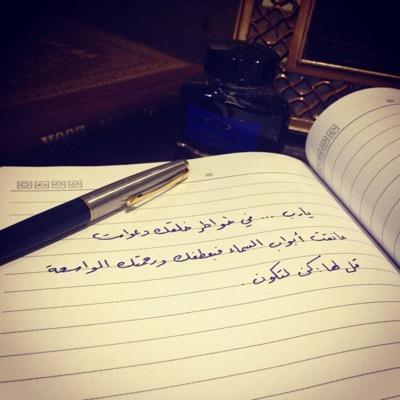 يارب ... في خواطر خلقك دعوات
عانقت أبواب السماء فبعطفك ورحمتك الواسعة
قل لها: كن لتكون.